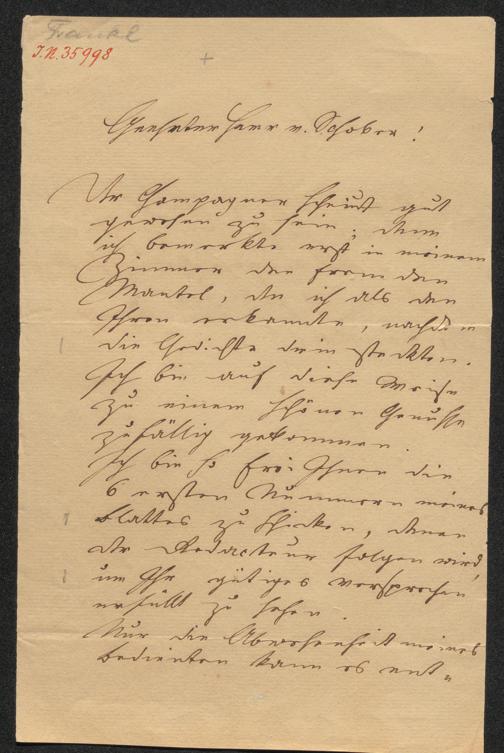 Frankl
I.N. 35998
Geehrter Herr v. Schober!
Der Champagner scheint gut
gewesen zu sein, denn
ich bemerkte erst in meinem
Zimmer den fremden
Mantel, den ich als den
Ihren erkannte, nachdem
die Gedichte drin steckten.
Ich bin auf diese Weise
zu einem schönen Genusse
zufällig gekommen.
Ich bin so frei Ihnen die
6 ersten Nummern meines
Blattes zu schicken, denen
der Redacteur folgen wird,
um Ihr gütiges Versprechen
erfüllt zu sehen.
Nur die Abwesenheit meines
Bedienten kann es ent-